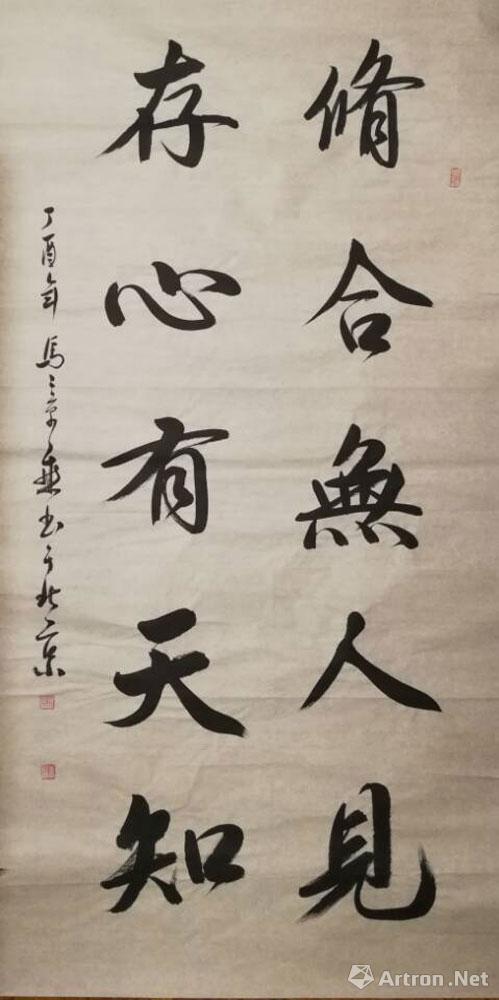 脩合無人見
存心有天知
丁酉年馬三字乗书于北京
Artron.Net